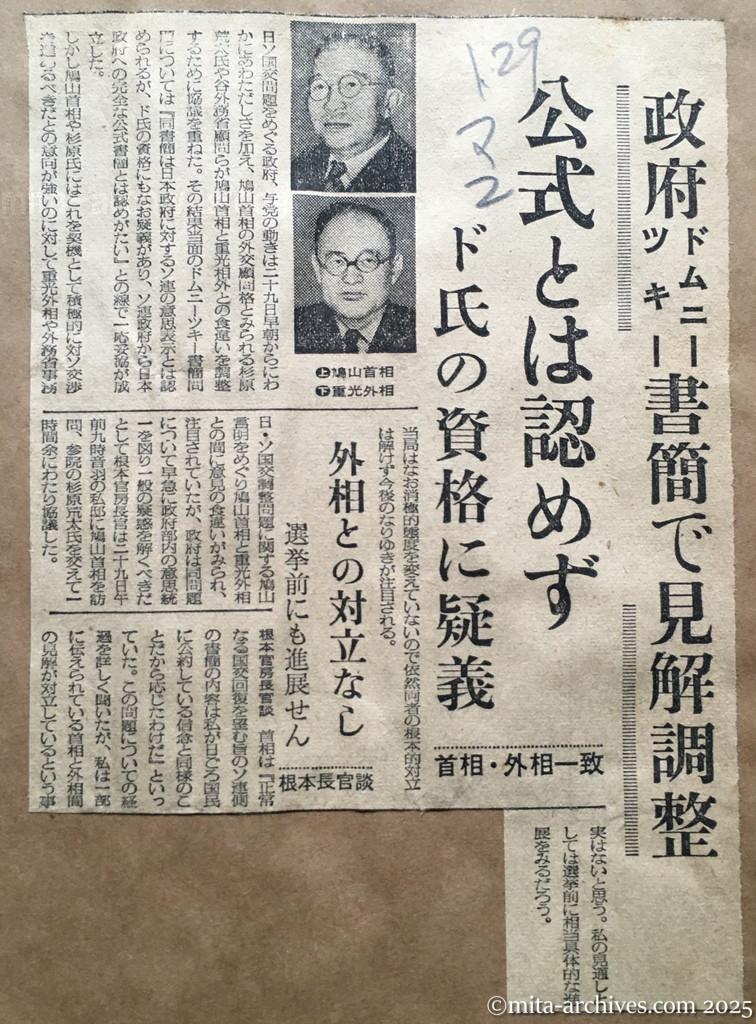 政府ドムニーツキー書簡で見解調整
公式とは認めず
ド氏の資格に疑義
首相・外相一致
1.29
マ
2
上鳩山首相
下重光外相
日ソ国交問題をめぐる政府、与党の動きは二十九日早朝からにわ
かにあわただしさを加え、鳩山首相の外交顧問格とみられる杉原
荒太氏や谷外務省顧問らが鳩山首相と重光外相との食違いを調整
するために協議を重ねた。その結果当面のドムニーツキー書簡問
題については『同書簡は日本政府に対するソ連の意思表示とは認
められるが、ド氏の資格にもなお疑義があり、ソ連政府から日本
政府への完全な公式書簡とは認めがたい』との線で一応妥協が成
立した。
しかし鳩山首相や杉原氏にはこれを契機として積極的に対ソ交渉
を進めるべきだとの意向が強いのに対して重光外相や外務省事務
当局はなお消極的態度を変えていないので依然両者の根本的対立
は解けず今後のなりゆきが注目される。
外相との対立なし
選挙前にも進展せん
根本長官談
日・ソ国交調整問題に関する鳩山
言明をめぐり鳩山首相と重光外相
との間に意見の食違いがみられ、
注目されていたが、政府は同問題
について早急に政府部内の意思統
一を図り一般の疑惑を解くべきだ
として根本官房長官は二十九日午
前九時音羽の私邸に鳩山首相を訪
問、参院の杉原荒太氏を交えて一
時間余にわたり協議した。
根本官房長官談 首相は『正常
なる国交回復を望む旨のソ連側
の書簡の内容は私が日ごろ国民
に公約している信念と同様のこ
とだから応じたわけだ』といっ
ていた。この問題についての経
過を詳しく聞いたが、私は一部
に伝えられている首相と外相間
の見解が対立しているという事
実はないと思う。私の見通しと
しては選挙前に相当具体的な進
展をみるだろう。
©mita-archives.com 2025